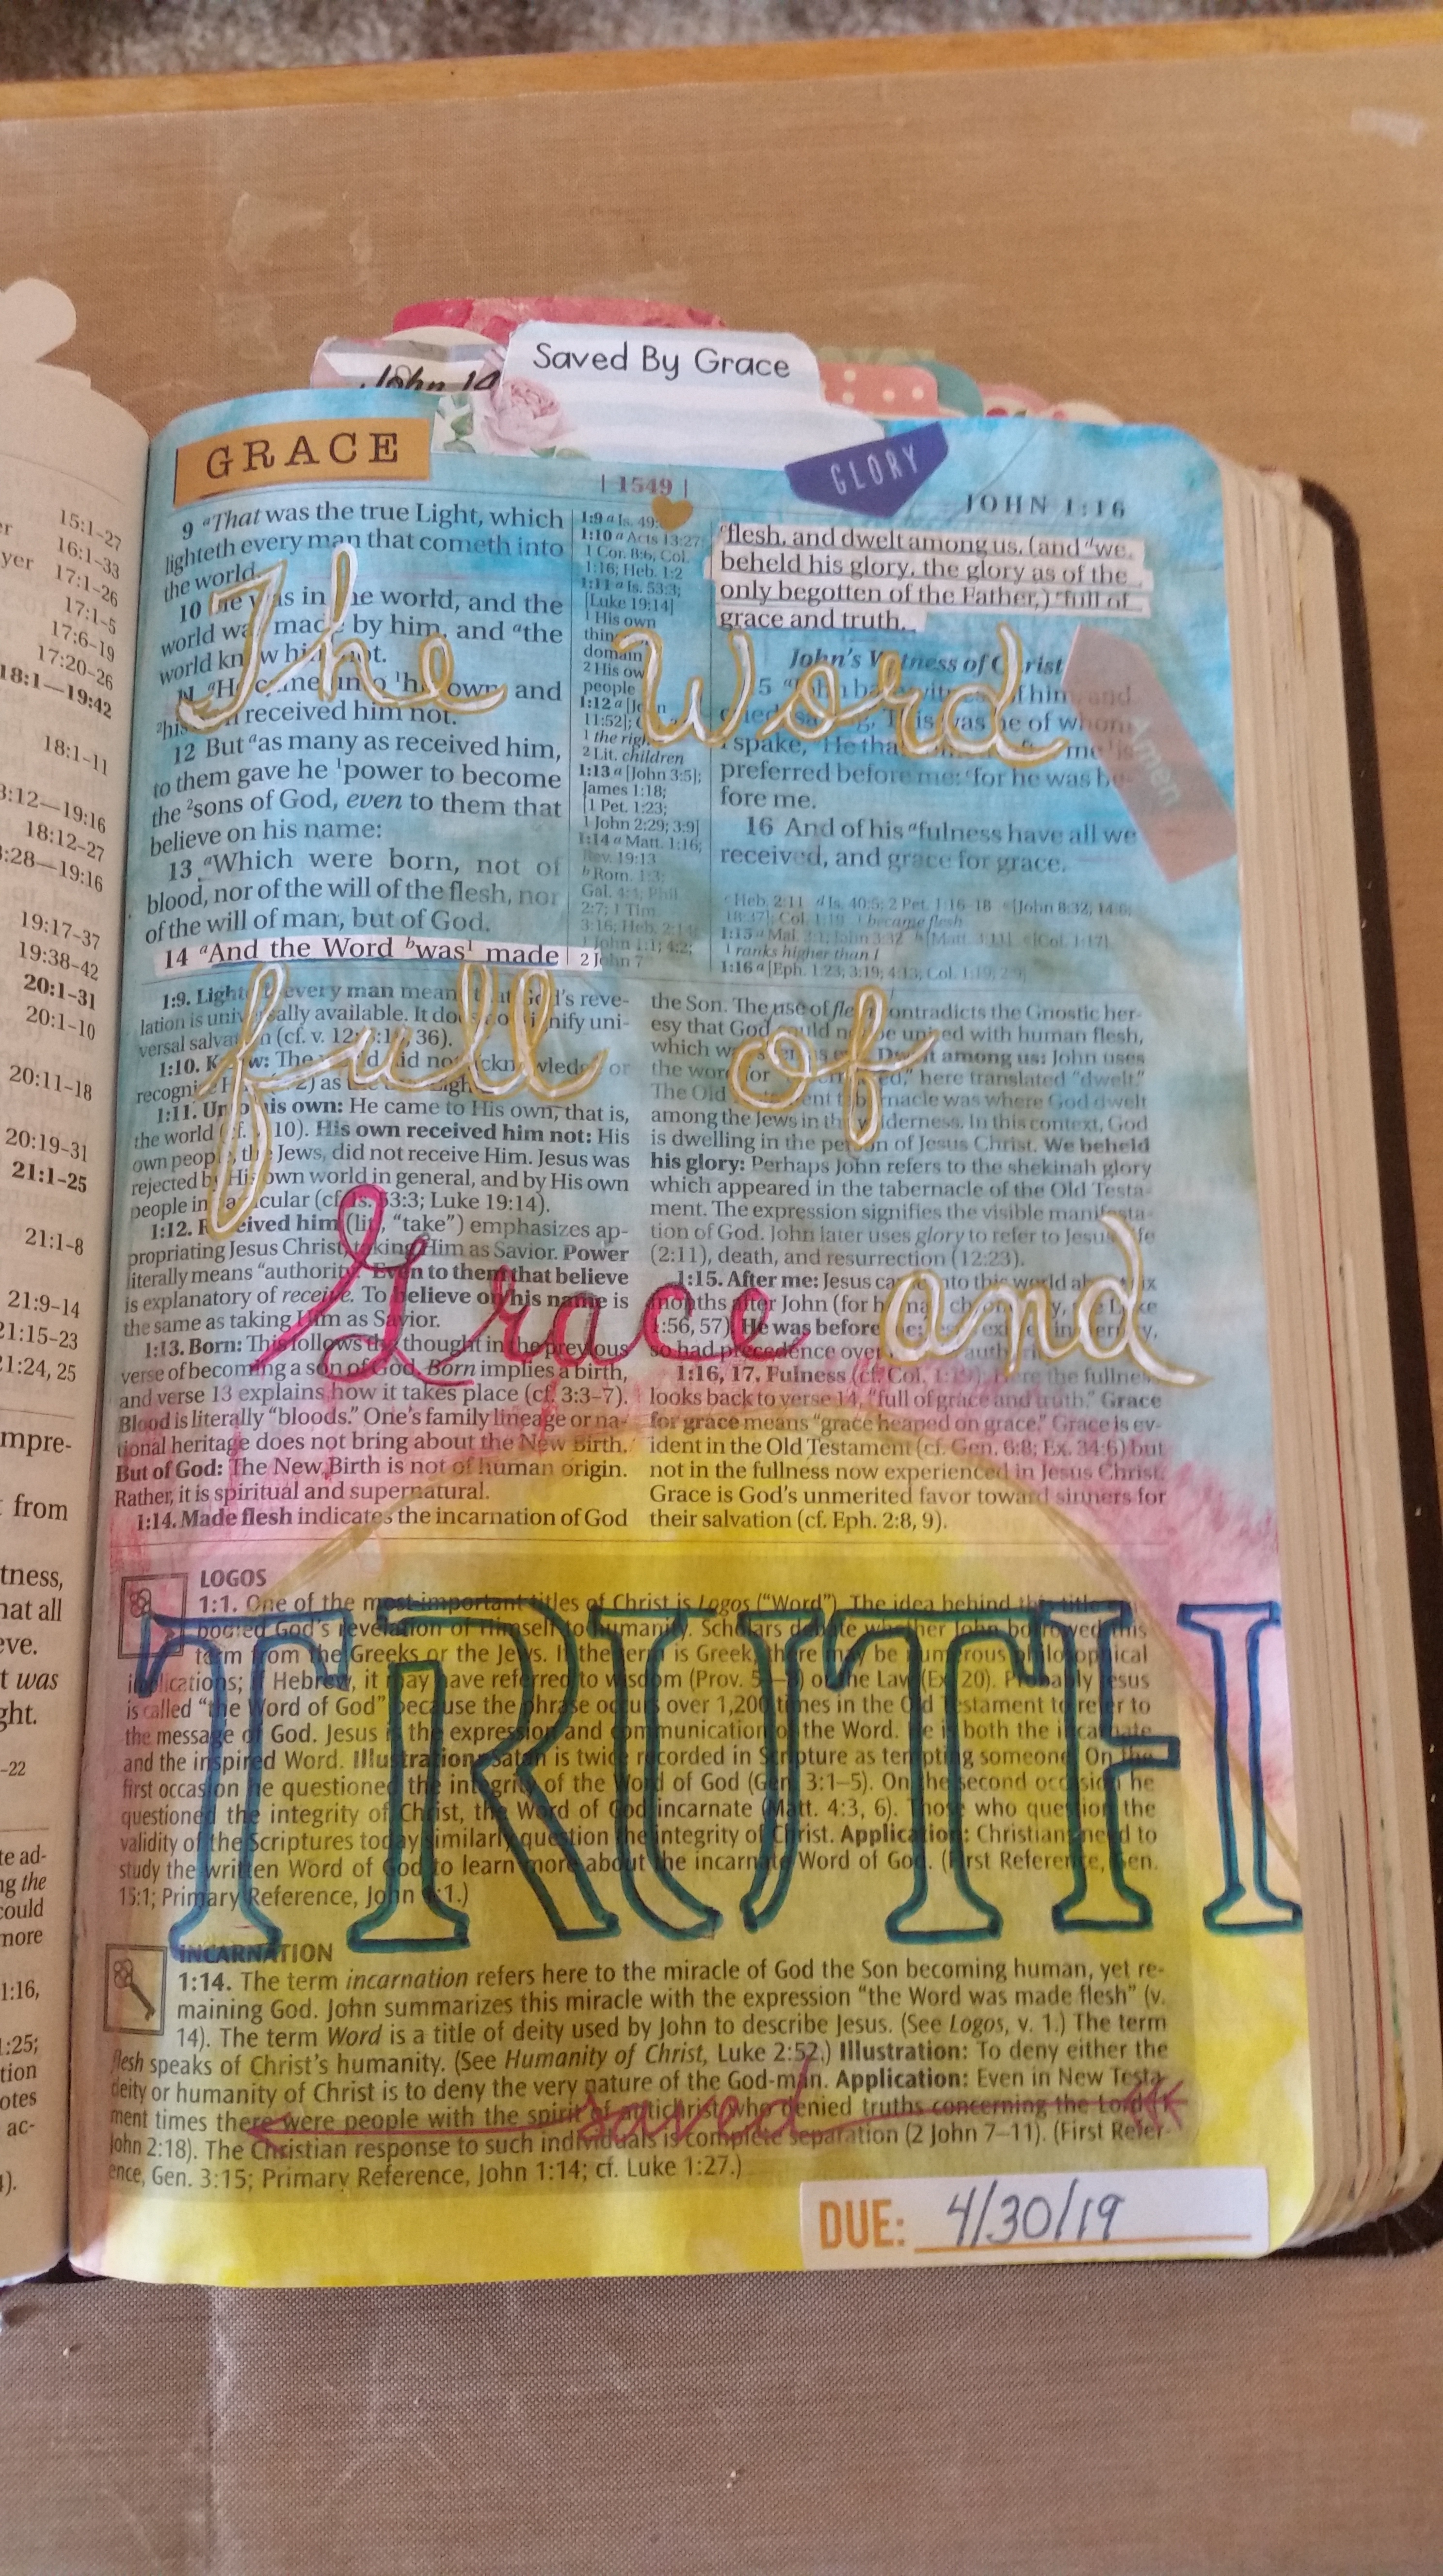 Saved By Grace
John 14
GRACE
GLORY
| 1549 |
JOHN 1:16
9 aThat was the true Light, which
lighteth every man that cometh into
the world.
10 He was in the world, and the
world was made by him, and athe
world knew him not.
11 aHe came unto 1his own, and
2his own received him not.
12 But aas many as received him,
to them gave he 1power to become
the 2sons of God, even to them that
believe on his name:
13 aWhich were born, not of
blood, nor of the will of the flesh, nor
of the will of man, but of God.
14 aAnd the Word bwas1 made
1:9 a Is. 49:
1:10 a Acts 13:27;
1 Cor. 8:6; Col.
1:16; Heb. 1:2
1:11 a Is. 53:3;
[Luke 19:14]
1 His own
things
domain
2 His own
people
1:12 a [John
11:52];
1 the right
2 Lit. children
1:13 a [John 3:5];
James 1:18;
[1 Pet. 1:23;
1 John 2:29; 3:9]
1:14 a Matt. 1:16;
Rev. 19:13
b Rom. 1:3;
Gal. 4:4; Phil.
2:7; 1 Tim.
3:16; Heb. 2:14;
1 John 1:1; 4:2;
2 John 7
cflesh, and dwelt among us, (and dwe
beheld his glory, the glory as of the
only begotten of the Father,) efull of
grace and truth.
John's Witness of Christ
15 aJohn bare witness of him, and
cried, saying, This was he of whom
I spake, bHe that cometh after me 1is
preferred before me: cfor he was be-
fore me.
16 And of his afulness have all we
received, and grace for grace.
c Heb. 2:11 d Is. 40:5; 2 Pet. 1:16–18 e [John 8:32; 14:6;
18:37]; Col. 1:19 1 became flesh
1:15 a Mal. 3:1; John 3:32 b [Matt. 3:11] c [Col. 1:17]
1 ranks higher than I
1:16 a [Eph. 1:23; 3:19; 4:13; Col. 1:19; 2:9]
Amen
The Word
full of
Grace and
TRUTH
1:9. Lighteth every man means that God's reve-
lation is universally available. It does not signify uni-
versal salvation (cf. v. 12; 3:19, 36).
1:10. Knew: The world did not acknowledge or
recognize Him as the Light.
1:11. Unto his own: He came to His own, that is,
the world (cf. v. 10). His own received him not: His
own people, the Jews, did not receive Him. Jesus was
rejected by His own world in general, and by His own
people in particular (cf. Is. 53:3; Luke 19:14).
1:12. Received him (lit., “take”) emphasizes ap-
propriating Jesus Christ, taking Him as Savior. Power
literally means “authority.” Even to them that believe
is explanatory of receive. To believe on his name is
the same as taking Him as Savior.
1:13. Born: This follows the thought in the previous
verse of becoming a son of God. Born implies a birth,
and verse 13 explains how it takes place (cf. 3:3–7).
Blood is literally “bloods.” One's family lineage or na-
tional heritage does not bring about the New Birth.
But of God: The New Birth is not of human origin.
Rather, it is spiritual and supernatural.
1:14. Made flesh indicates the incarnation of God
the Son. The use of flesh contradicts the Gnostic her-
esy that God could not be united with human flesh,
which was seen as evil. Dwelt among us: John uses
the word for here translated “dwelt.”
The Old Testament tabernacle was where God dwelt
among the Jews in the wilderness. In this context, God
is dwelling in the person of Jesus Christ. We beheld
his glory: Perhaps John refers to the shekinah glory
which appeared in the tabernacle of the Old Testa-
ment. The expression signifies the visible manifesta-
tion of God. John later uses glory to refer to Jesus' life
(2:11), death, and resurrection (12:23).
1:15. After me: Jesus came into this world about six
months after John (for chronology, see Luke
1:56, 57). He was before
so had precedence over
1:16, 17. Fulness (cf. Col. 1:19). Here the fullness
looks back to verse 14, “full of grace and truth.” Grace
for grace means “grace heaped on grace.” Grace is ev-
ident in the Old Testament (cf. Gen. 6:8; Ex. 34:6) but
not in the fullness now experienced in Jesus Christ.
Grace is God's unmerited favor toward sinners for
their salvation (cf. Eph. 2:8, 9).
LOGOS
1:1. One of the most important titles of Christ is Logos (“Word”). The idea behind this title
God's revelation of Himself to humanity. Scholars debate whether John borrowed this
term from the Greeks or the Jews. If the term is Greek, there may be numerous philosophical
implications; if Hebrew, it may have referred to wisdom (Prov. 5–8) or the Law (Ex. 20). Probably Jesus
is called “the Word of God” because the phrase occurs over 1,200 times in the Old Testament to refer to
the message of God. Jesus is the expression and communication of the Word. He is both the incarnate
and the inspired Word. Illustration: Satan is twice recorded in Scripture as tempting someone. On the
first occasion he questioned the integrity of the Word of God (Gen. 3:1–5). On the second occasion he
questioned the integrity of Christ, the Word of God incarnate (Matt. 4:3, 6). Those who question the
validity of the Scriptures today similarly question the integrity of Christ. Application: Christians need to
study the written Word of God to learn more about the incarnate Word of God. (First Reference, Gen.
15:1; Primary Reference, John 1:1.)
INCARNATION
1:14. The term incarnation refers here to the miracle of God the Son becoming human, yet re-
maining God. John summarizes this miracle with the expression “the Word was made flesh” (v.
14). The term Word is a title of deity used by John to describe Jesus. (See Logos, v. 1.) The term
flesh speaks of Christ's humanity. (See Humanity of Christ, Luke 2:52.) Illustration: To deny either the
deity or humanity of Christ is to deny the very nature of the God-man. Application: Even in New Testa-
ment times there were people with the spirit of antichrist who denied truths concerning the Lord
John 2:18). The Christian response to such individuals is complete separation (2 John 7–11). (First Refer-
ence, Gen. 3:15; Primary Reference, John 1:14; cf. Luke 1:27.)
saved
DUE: 4/30/19
15:1–27
16:1–33
17:1–26
17:1–5
17:6–19
17:20–26
18:1—19:42
18:1–11
18:12—19:16
18:12–27
18:28—19:16
19:17–37
19:38–42
20:1–31
20:1–10
20:11–18
20:19–31
21:1–25
21:1–8
21:9–14
21:15–23
21:24, 25
from